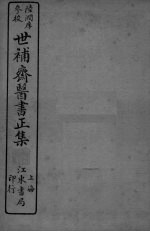 陸潤庠
參校
世補齋醫書正集
上海
江東書局
印行